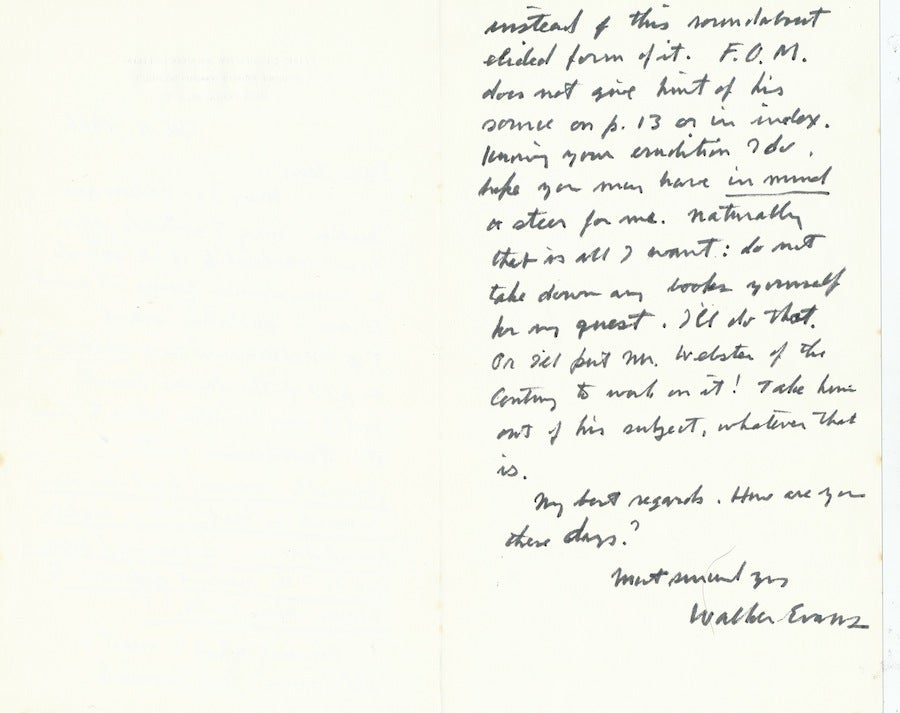 instead of this roundabout
elided form of it. F.O.M.
does not give hint of his
source on p. 13 or in index.
Knowing your erudition I do
hope you may have in mind
a steer for me. Naturally
that is all I want: do not
take down any books yourself
for my quest. I'll do that.
Or I'll put Mr. Webster of the
Century to work on it! Take him
out of his subject, whatever that
is.
My best regards. How are you
these days?
Most sincerely yrs
Walker Evans